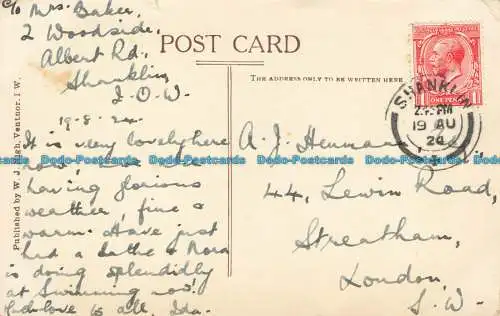 c/o Mrs. Baker,
2 Woodside,
Albert Rd.,
Shanklin,
I.O.W.
19-8-24
It is very lovely here
now,
having glorious
weather, fine &
warm. Have just
had a bathe & Nora
is doing splendidly
at swimming now!
Much love to all, Ida.
Published by W. J. Nigh, Ventnor, I.W.
POST CARD
THE ADDRESS ONLY TO BE WRITTEN HERE
ONE PENNY
SHANKLIN
PM
19 AU
24
A. J. Henman
44, Lewin Road,
Streatham,
London,
S.W.
Dodo-Postcards Dodo-Postcards Dodo-Postcards Dodo-Postcards